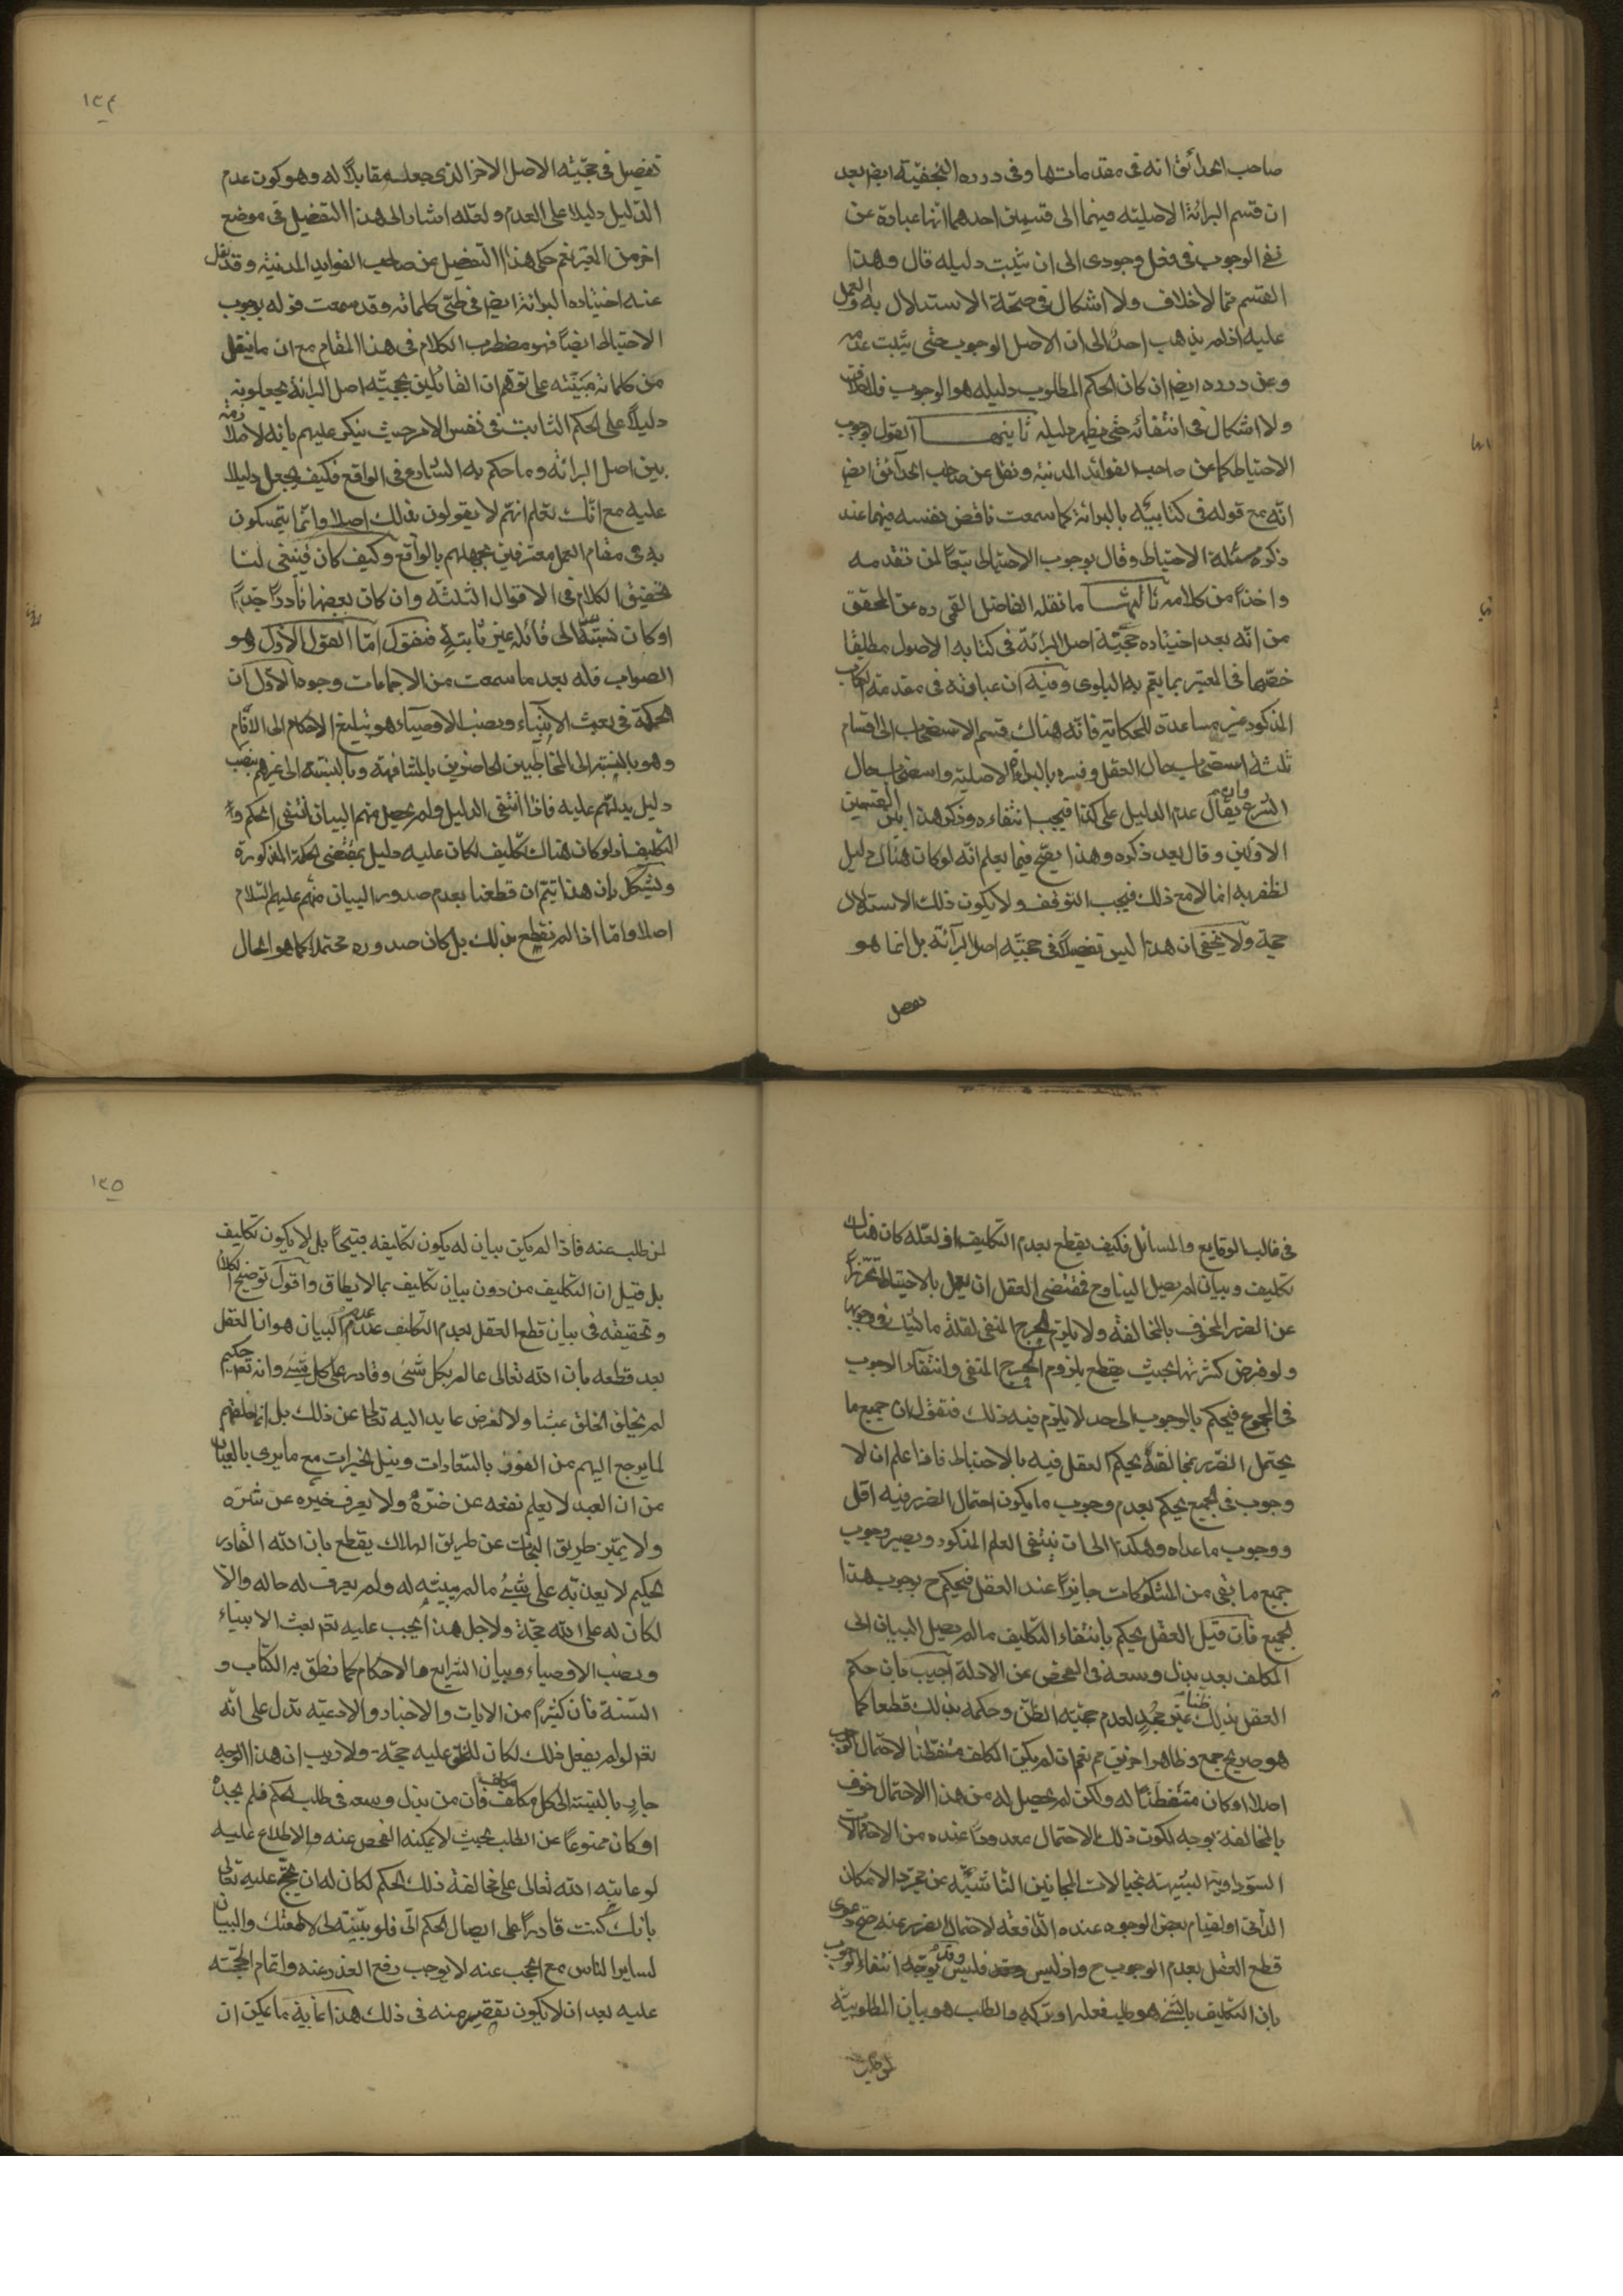 صاحب الحدائق انه فى مقدماتها وفى درره النجفيّة ايضا بعد
ان قسم البرائة الاصليّة فيهما الى قسمين احدهما انها عبارة عن
نفى الوجوب فى فعل وجودى الى ان يثبت دليله قال وهذا
القسم ممّا لاخلاف ولا اشكال فى صحّة الاستدلال به والعمل
عليه اذ لم يذهب احد الى ان الاصل الوجوب حتى يثبت عدمه
وعن درره ايضا ان كان الحكم المطلوب دليله هو الوجوب فلاخلاف
ولا اشكال فى انتفائه حتى يظهر دليله ثانيها القول بوجوب
الاحتياط كما عن صاحب الفوائد المدنيّة ونقل عن صاحب الحدائق ايضا
انّه مع قوله فى كتابيه بالبرائة كما سمعت ناقض نفسه فيهما عند
ذكره مسئلة الاحتياط وقال بوجوب الاحتياط تبعًا لمن تقدمه
واخذًا من كلامه ثالثها ما نقله الفاضل القمى ره عن المحقق
من انّه بعد اختياره حجّيّة اصل البرائة فى كتابه الاصول مطلقا
خصّها فى المعتبر بما يعمّ به البلوى وفيه ان عبارته فى مقدمة الكتاب
المذكور غير مساعدة للحكاية فانّه هناك قسم الاستصحاب الى اقسام
ثلثة استصحاب حال العقل وفسره بالبراءة الاصلية واستصحاب حال
الشرع وان يقال عدم الدليل على كذا فيجب انتفاءه وذكر هذا بين القسمين
الاوّلين وقال بعد ذكره وهذا يصّح فيما يعلم انّه لو كان هناك دليل
لظفر به امّا لامع ذلك فيجب التوقف ولا يكون ذلك الاستدلال
حجة ولا يخفى ان هذا ليس تفصيلًا فى حجيّة اصل البرائة بل انما هو
تفصيل
١٣٤
تفصيل فى حجّيّة الاصل الاخر الذى جعله مقابلًا له وهو كون عدم
الدّليل دليلا على العدم ولعلّه اشار الى هذا التفصيل فى موضع
اخر من المعتبر نعم حكى هذا التفصيل عن صاحب الفوايد المدنيّة وقد نقل
عنه اختياره البرائة ايضا فى طىّ كلماته وقد سمعت قوله بوجوب
الاحتياط ايضًا فهو مضطرب الكلام فى هذا المقام مع ان ما ينقل
من كلماته مبتنية على توهم ان القائلين بحجيّة اصل البرائة يجعلونه
دليلًا على الحكم الثابت فى نفس الامر حيث ينكر عليهم بانه لا ملازمة
بين اصل البرائة وما حكم به الشارع فى الواقع فكيف يجعل دليلا
عليه مع انّك تعلم انهم لا يقولون بذلك اصلا وانما يتمسكون
به فى مقام العمل معترفين بجهلهم بالواقع وكيف كان فينبغى لنا
تحقيق الكلام فى الاقوال الثلثة وان كان بعضها نادرًا جدًّا
او كان نسبته الى قائله غير ثابتةٍ فنقول امّا القول الاوّل وهو
الصواب فله بعد ما سمعت من الاجماعات وجوه الاوّل ان
الحكمة فى بعث الانبياء ونصب الاوصياء هو تبليغ الاحكام الى الانام
وهو بالنسبة الى المخاطبين الحاضرين بالمشافهة وبالنسبة الى غيرهم بنصب
دليل يدلّهم عليه فاذا انتفى الدليل ولم يحصل منهم البيان انتفى الحكم و
التكليف اذ لو كان هناك تكليف لكان عليه دليل بمقتضى الحكمة المذكورة
ويشكل بان هذا يتم ان قطعنا بعدم صدور البيان منهم عليهم السّلام
اصلا وامّا اذا لم نقطع بذلك بل كان صدوره محتملا كما هو الحال
فى غالب الوقايع والمسائل فكيف يقطع بعدم التكليف اذ لعلّه كان هناك
تكليف وبيان لم يصل الينا وح فمقتضى العقل ان يعمل بالاحتياط تحرّزًا
عن الضرر المخوف بالمخالفة ولا يلزم الحرج المنفى لقلة ما يشك فى وجوبها
ولو فرض كثرتها بحيث يقطع بلزوم الحرج المنفى وانتفاء الوجوب
فى المجموع فيحكم بالوجوب الى حد لا يلزم فيه ذلك فنقول ان جميع ما
يحتمل الضرر بمخالفته يحكم العقل فيه بالاحتياط فاذا علم ان لا
وجوب فى الجميع يحكم بعدم وجوب ما يكون احتمال الضرر فيه اقل
ووجوب ما عداه وهكذا الى ان ينتفى العلم المذكور ويصير وجوب
جميع ما بقى من المشكوكات جايزًا عند العقل فيحكم ح بوجوب هذا
الجميع فان قيل العقل يحكم بانتفاء التكليف ما لم يصل البيان الى
المكلف بعد بذل وسعه فى الفحص عن الادلة اجيب بان حكم
العقل بذلك ظنا غير مُجدٍ لعدم حجيّة الظنّ وحكمه بذلك قطعا كما
هو صريح جمع وظاهر اخرين مم نعم ان لم يكن المكلف متفطنا لاحتمال الوجوب
اصلا او كان متفطنًا له ولكن لم يحصل له من هذا الاحتمال خوف
بالمخالفة بوجه لكون ذلك الاحتمال معدودًا عنده من الاحتمالات
السّوداوية الشبيهة بخيالات المجانين الناشئة عن مجرّد الامكان
الذّاتى او لقيام بعض الوجوه عنده الدّافعة لاحتمال الضرر عنه صحّ دعوى
قطع العقل بعدم الوجوب ح واذ ليس فليس وقد يوجّه انتفاء الوجوب
بان التكليف بالشئ هو طلب فعله او تركه والطلب هو بيان المطلوبيّة
١٣٥
لمن طلب عنه فاذا لم يكن بيان له يكون تكليفه قبيحًا بل لا يكون تكليف
بل قيل ان التكليف من دون بيان تكليف بما لا يطاق واقول توضيح الكلام
وتحقيقه فى بيان قطع العقل بعدم التكليف عند عدم البيان هو ان العقل
بعد قطعه بان الله تعالى عالم بكل شئ وقادر على كل شئ وانه تعم حكيم
لم يخلق الخلق عبثا ولا لغرض عايد اليه تعالى عن ذلك بل انما خلقهم
لما يرجع اليهم من الفوز بالسّعادات ونيل الخيرات مع ما يرى بالعيان
من ان العبد لا يعلم نفعه عن ضرّه ولا يعرف خيره عن شرّه
ولا يميّز طريق النجات عن طريق الهلاك يقطع بان الله القادر
الحكيم لا يعذّبه على شئ ما لم يبيّنه له ولم يعرف له حاله والّا
لكان له على الله حجّة ولاجل هذا يجب عليه تعم بعث الانبياء
ونصب الاوصياء وبيان الشرايع والاحكام كما نطق به الكتاب و
السّنة فان كثيرًا من الايات والاخبار والادعيه تدل على انّه
تعم لو لم يفعل ذلك لكان للخلق عليه حجّة ولا ريب ان هذا الوجه
جارٍ بالنسبة الى كل مكلف مكلف فان من بذل وسعه فى طلب الحكم فلم يجده
او كان ممنوعًا عن الطلب بحيث لا يمكنه الفحص عنه والاطلاع عليه
لو عاتبه الله تعالى على مخالفة ذلك الحكم لكان له ان يحتج عليه تعالى
بانك كنت قادرًا على ايصال الحكم الىّ فلو بيّنته لى لاطعتك والبيان
لساير الناس مع الحجب عنه لا يوجب رفع العذر عنه واتمام الحجّة
عليه بعد ان لا يكون تقصير منه فى ذلك هذا غاية ما يمكن ان